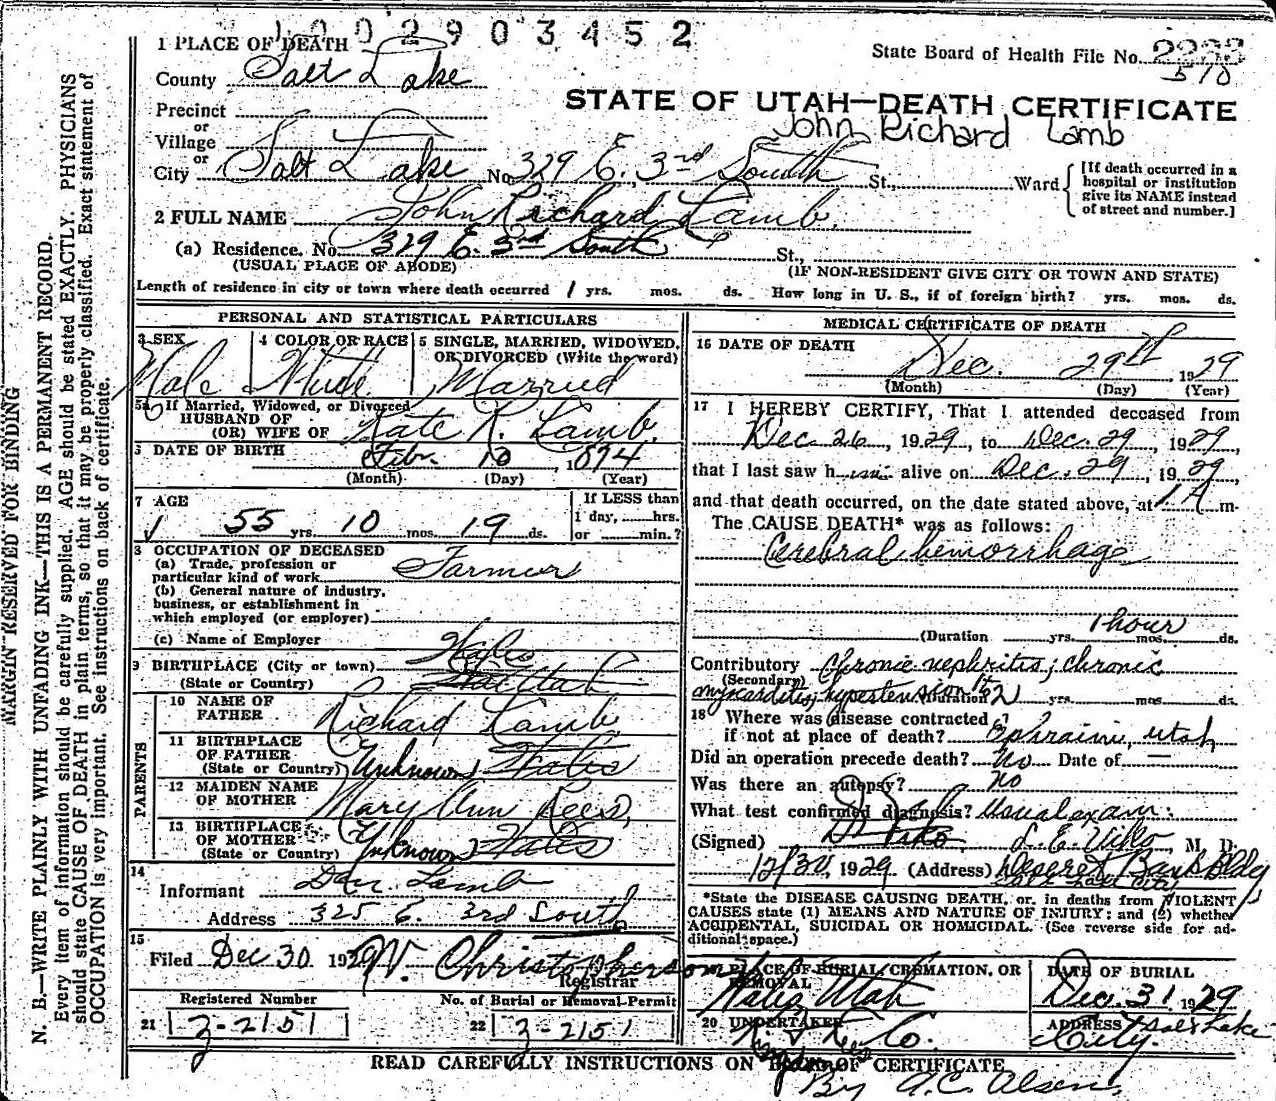 1002903452
1 PLACE OF DEATH
State Board of Health File No. 2233
510
County Salt Lake
STATE OF UTAH—DEATH CERTIFICATE
John Richard Lamb
Precinct
or
Village
or
City Salt Lake No. 329 E. 3rd South St., Ward
[If death occurred in a hospital or institution give its NAME instead of street and number.]
2 FULL NAME John Richard Lamb
(a) Residence. No. 329 E. 3rd South St.,
(USUAL PLACE OF ABODE) (IF NON-RESIDENT GIVE CITY OR TOWN AND STATE)
Length of residence in city or town where death occurred 1 yrs. mos. ds. How long in U. S., if of foreign birth? yrs. mos. ds.
PERSONAL AND STATISTICAL PARTICULARS
3 SEX
Male
4 COLOR OR RACE
White
5 SINGLE, MARRIED, WIDOWED, OR DIVORCED (Write the word)
Married
5a If Married, Widowed, or Divorced
HUSBAND OF
(OR) WIFE OF Kate R. Lamb
6 DATE OF BIRTH Feb. 10 1874
(Month) (Day) (Year)
7 AGE
55 yrs. 10 mos. 19 ds.
If LESS than
1 day, hrs.
or min.?
8 OCCUPATION OF DECEASED
(a) Trade, profession or
particular kind of work Farmer
(b) General nature of industry,
business, or establishment in
which employed (or employer)
(c) Name of Employer
9 BIRTHPLACE (City or town) Wales
(State or Country) Utah
PARENTS
10 NAME OF
FATHER Richard Lamb
11 BIRTHPLACE
OF FATHER
(State or Country) Unknown Wales
12 MAIDEN NAME
OF MOTHER Mary Ann Rees
13 BIRTHPLACE
OF MOTHER
(State or Country) Unknown Wales
14
Informant Dan Lamb
Address 325 E. 3rd South
15
Filed Dec 30 1929 W. Christopherson
Registrar
Registered Number
21 3-2151
No. of Burial or Removal Permit
22 3-2151
MEDICAL CERTIFICATE OF DEATH
16 DATE OF DEATH
Dec. 29th, 1929
(Month) (Day) (Year)
17 I HEREBY CERTIFY, That I attended deceased from
Dec 26, 1929, to Dec. 29, 1929,
that I last saw him alive on Dec. 29, 1929,
and that death occurred, on the date stated above, at 1 A m.
The CAUSE DEATH* was as follows:
Cerebral hemorrhage
(Duration yrs. 1 hour mos. ds.
Contributory Chronic nephritis; chronic
(Secondary)
myocarditis; hypertension (Duration 2 yrs. mos. ds.
18 Where was disease contracted
if not at place of death? Ephraim, Utah
Did an operation precede death? No Date of —
Was there an autopsy? no
What test confirmed diagnosis? Usual exam.
(Signed) L. E. Viko, M. D.
12/30, 1929 (Address) Deseret Bank Bldg
Salt Lake City
*State the DISEASE CAUSING DEATH, or, in deaths from VIOLENT
CAUSES state (1) MEANS AND NATURE OF INJURY; and (2) whether
ACCIDENTAL, SUICIDAL OR HOMICIDAL. (See reverse side for ad-
ditional space.)
PLACE OF BURIAL, CREMATION, OR
REMOVAL
Wales Utah
DATE OF BURIAL
Dec. 31 1929
20 UNDERTAKER
Co.
ADDRESS Salt Lake
City.
READ CAREFULLY INSTRUCTIONS ON BACK OF CERTIFICATE
By A. C. Olsen
MARGIN RESERVED FOR BINDING
N. B.—WRITE PLAINLY WITH UNFADING INK—THIS IS A PERMANENT RECORD.
Every item of information should be carefully supplied. AGE should be stated EXACTLY. PHYSICIANS
should state CAUSE OF DEATH in plain terms, so that it may be properly classified. Exact statement of
OCCUPATION is very important. See instructions on back of certificate.